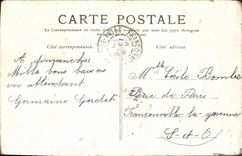 CARTE POSTALE
La Correspondance au recto n'est pas acceptée par tous les pays étrangers
Côté correspondance.
Côté adresse.
A dimanche
Mille bons baisers
en attendant
Germaine
Mlle
Rue de Paris
Franconville la garenne
S-et-O